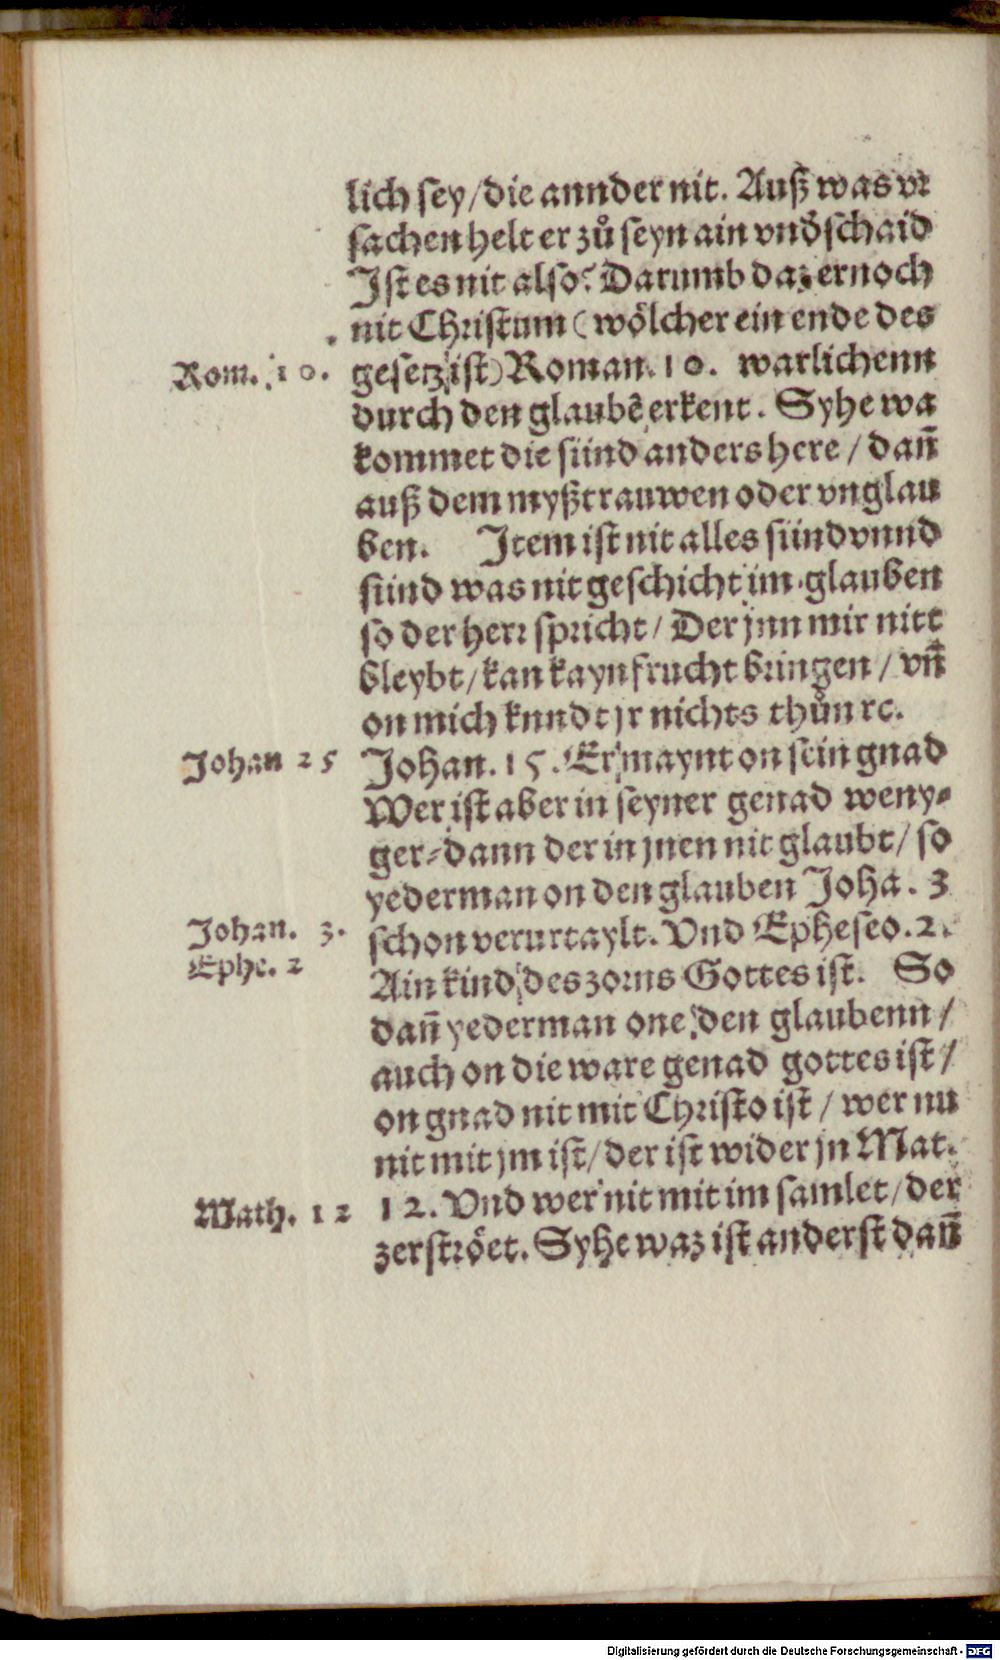 lich sey/die annder nit. Auß was vr
sachen helt er zuͦ seyn ain vnd̕schaid
Jst es nit also? Darumb daz er noch
nit Christum (woͤlcher ein ende des
Rom. 10.
gesetz ist) Roman. 10. warlichenn
durch den glaubē erkent. Syhe wa
kommet die sünd anders here / dañ
auß dem myßtrauwen oder vnglau
ben. Jtem ist nit alles sünd vnnd
sünd was nit geschicht im glauben
so der herr spricht/ Der jnn mir nitt
bleybt/kan kayn frucht bringen / vñ
on mich knndt jr nichts thuͦn ꝛc.
Johan 25
Johan. 15. Er maynt on sein gnad
Wer ist aber in seyner genad weny⸗
ger⸗dann der in jnen nit glaubt/ so
yederman on den glauben Joha. 3
Johan. 3.
schon verurtaylt. Vnd Epheseo. 2.
Ephe. 2
Ain kind des zorns Gottes ist. So
dañ yederman one den glaubenn /
auch on die ware genad gottes ist /
on gnad nit mit Christo ist / wer nu
nit mit jm ist/der ist wider jn Mat.
Math. 12
12. Vnd wer nit mit im samlet/der
zerstroͤet. Syhe waz ist anderst dañ
Digitalisierung gefördert durch die Deutsche Forschungsgemeinschaft - DFG